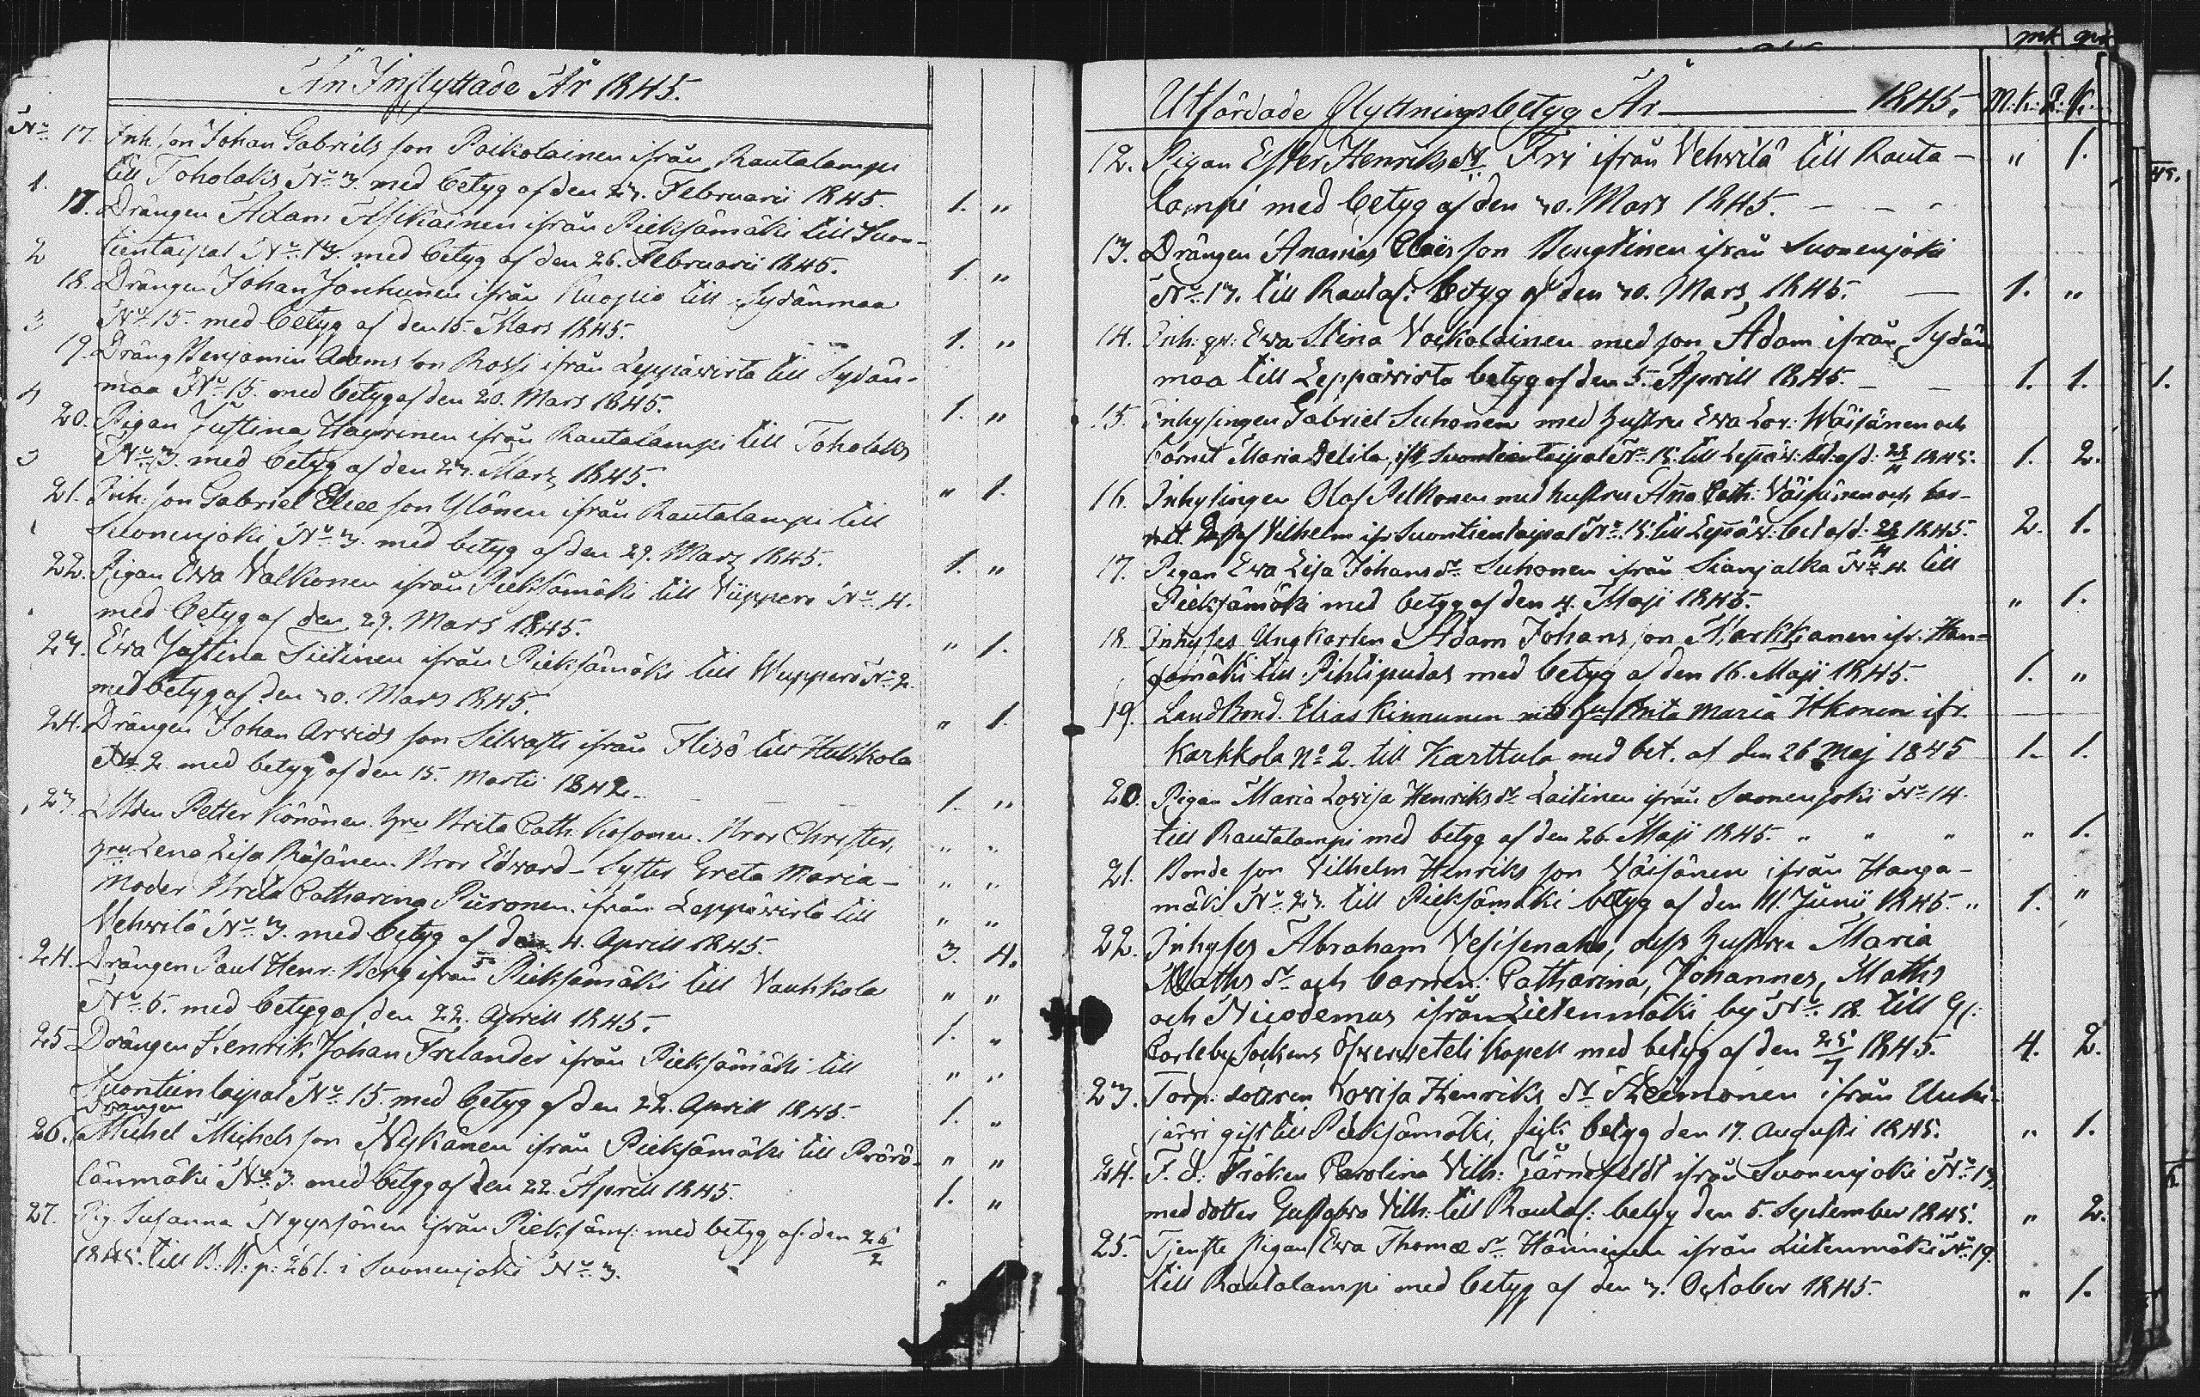 In Inflyttade År 1845.
No 17. Inh. son Johan Gabriels son Poikolainen ifrån Rautalampi
1. till Toholaks No 3. med betyg af den 23. Februarii 1845. 1. "
17. Drängen Adam Asikainen ifrån Pieksämäki till Suon-
2 tientaipal No 13. med betyg af den 26. Februarii 1845. 1. "
18. Drängen Johan Jonhunen ifrån Kuopio till Sydänmaa
3 No 15. med betyg af den 15. Mars 1845. 1. "
19. Dräng Benjamin Adams son Rossi ifrån Leppävirta till Sydän-
4 maa No 15. med betyg af den 20. Mars 1845. 1. "
20. Pigan Justina Häyrinen ifrån Rautalampi till Toholaks
No 3. med betyg af den 23. Mars 1845. " 1.
21. Inh: son Gabriel Eliæ son Ylönen ifrån Rautalampi till
Suonenjoki No 3. med betyg af den 29. Mars 1845. 1. "
22. Pigan Ewa Valkonen ifrån Pieksämäki till Vüppero No 4.
med betyg af den 29. Mars 1845. " 1.
23. Ewa Justina Siitinen ifrån Pieksämäki till Wupperö No 2.
med betyg af den 30. Mars 1845. " 1.
24. Drängen Johan Arvids son Selvasti ifrån till Hulkkola
No 2 med betyg af den 15. Martii 1842 1. "
23. Petter Könönen hru Brita Cath: Kosonen. Bror Christer, " "
hru Lena Lisa Räsänen. Bror Edward - Syster Greta Maria - " "
Moder Brita Catharina Puronen. ifrån Leppävirta till " "
Vehvilä No 3. med betyg af den 4. Aprill 1845. 3. 4.
24. Drängen Paul Henr: Berg ifrån Pieksämäki till Vauhkola " "
No 5. med betyg af den 22. Aprill 1845. 1. "
25 Drängen Henrik Johan Frilander ifrån Pieksämäki till " "
Suontientaipal No 15. med betyg af den 22. Aprill 1845. 1. "
Drängen
26. Michel Michels son Nyskänen ifrån Pieksämäki till Pörö- " "
länmäki No 3. med betyg af den 22. Aprill 1845. 1. "
27. Pig. Susanna Nyyssönen ifrån Pieksäm: med betyg af den 26/2
1845. till B. K: p: 261. i Suonenjoki No 3. "
mk qvk
Utfärdade Flyttningsbetyg År 1845. M.k. Q.k.
12. Pigan Ester Henriks dr Fri ifrån Vehvilä till Rauta- " 1.
lampi med betyg af den 30. Mars 1845.
13. Drängen Ananias Claës son Bengtinen ifrån Suonenjoki
No 17. till Rautal: betyg af den 30. Mars 1845. 1. "
14. Inh: qv: Ewa Stina Vockolainen med son Adam ifrån Sydän
maa till Leppävirta betyg af den 5. Aprill 1845. 1. 1.
15. Inhysingen Gabriel Suhonen med hustru Ewa Lov: Wäisänen och
barnet Maria Delila, ifr. Suontientaipal No 15. till Leppäv: bet: af d: 23/4 1845. 1. 2.
16. Inhysingen Olof Pelkonen med hustru Anna Cath: Väisänen och bar-
net Vilhelm ifr Suontientaipal No 15. till Leppäv: bet af d: 23/4 1845. 2. 1.
17. Pigan Ewa Lisa Johans dr Suhonen ifrån Sianjalka No 4 till
Pieksämäki med betyg af den 4. Maji 1845. " 1.
18. Inhyses Ungkarlen Adam Johans son Markkanen ifr. Han-
gamäki till Pihtipudas med betyg af den 16. Maji 1845. 1. "
19. Land Bond. Elias Kinnunen m. hu Brita Maria Itkonen ifr.
Karkkola No 2. till Karttula med bet. af den 26 Maj 1845 1. 1.
20. Pigan Maria Lovisa Henriks dr Laitinen ifrån Suonenjoki No 14.
till Rautalampi med betyg af den 26 Maji 1845. " " " " 1.
21. Bonde son Vilhelm Henriks son Väisänen ifrån Hanga-
mäki No 23. till Pieksämäki betyg af den 11. Junii 1845. " 1. "
22. Inhyses Abraham Vesisenaho, dess hustru Maria
Maths dr och barnen: Catharina, Johannes, Maths
och Nicodemus ifrån Lietenmäki by No 18. till G:
Carleby Sockens Öfverveteli Kapell med betyg af den 25/7 1845. 4. 2.
23. Torp: doteren Lovisa Henriks dr Heimonen ifrån Utuki-
järvi gift till Pieksämäki, fick betyg den 17. Augusti 1845. " 1.
24. F. d. Fröken Carolina Vilh: Järnefeldt ifrån Suonenjoki No 17.
med dotter Gustafva Vilh: till Rautal: betyg den 5. September 1845. " 2.
25. Tjenste pigan Ewa Thomæ dr Hänninen ifrån Lietenmäki No 19.
till Rautalampi med betyg af den 3. October 1845. " 1.